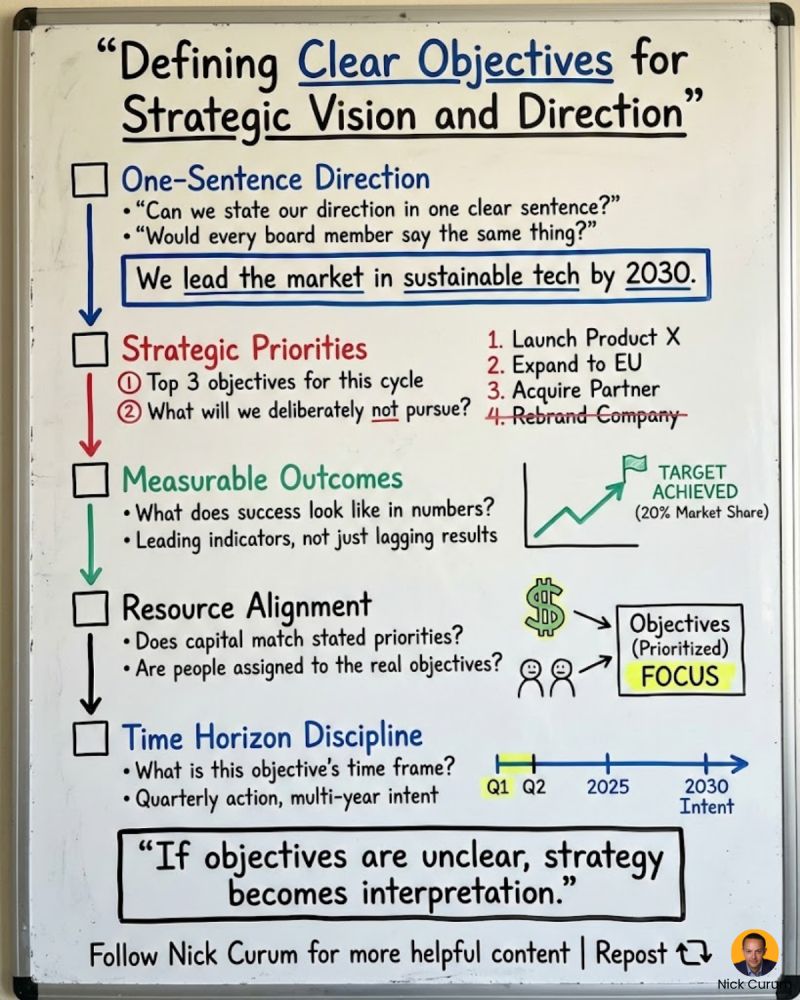 “Defining Clear Objectives for
Strategic Vision and Direction”
One-Sentence Direction
• “Can we state our direction in one clear sentence?”
• “Would every board member say the same thing?”
We lead the market in sustainable tech by 2030.
Strategic Priorities
① Top 3 objectives for this cycle
② What will we deliberately not pursue?
1. Launch Product X
2. Expand to EU
3. Acquire Partner
4. Rebrand Company
Measurable Outcomes
• What does success look like in numbers?
• Leading indicators, not just lagging results
TARGET
ACHIEVED
(20% Market Share)
Resource Alignment
• Does capital match stated priorities?
• Are people assigned to the real objectives?
$
Objectives
(Prioritized)
FOCUS
Time Horizon Discipline
• What is this objective's time frame?
• Quarterly action, multi-year intent
Q1 Q2 2025 2030
Intent
“If objectives are unclear, strategy
becomes interpretation.”
Follow Nick Curum for more helpful content | Repost
Nick Curum